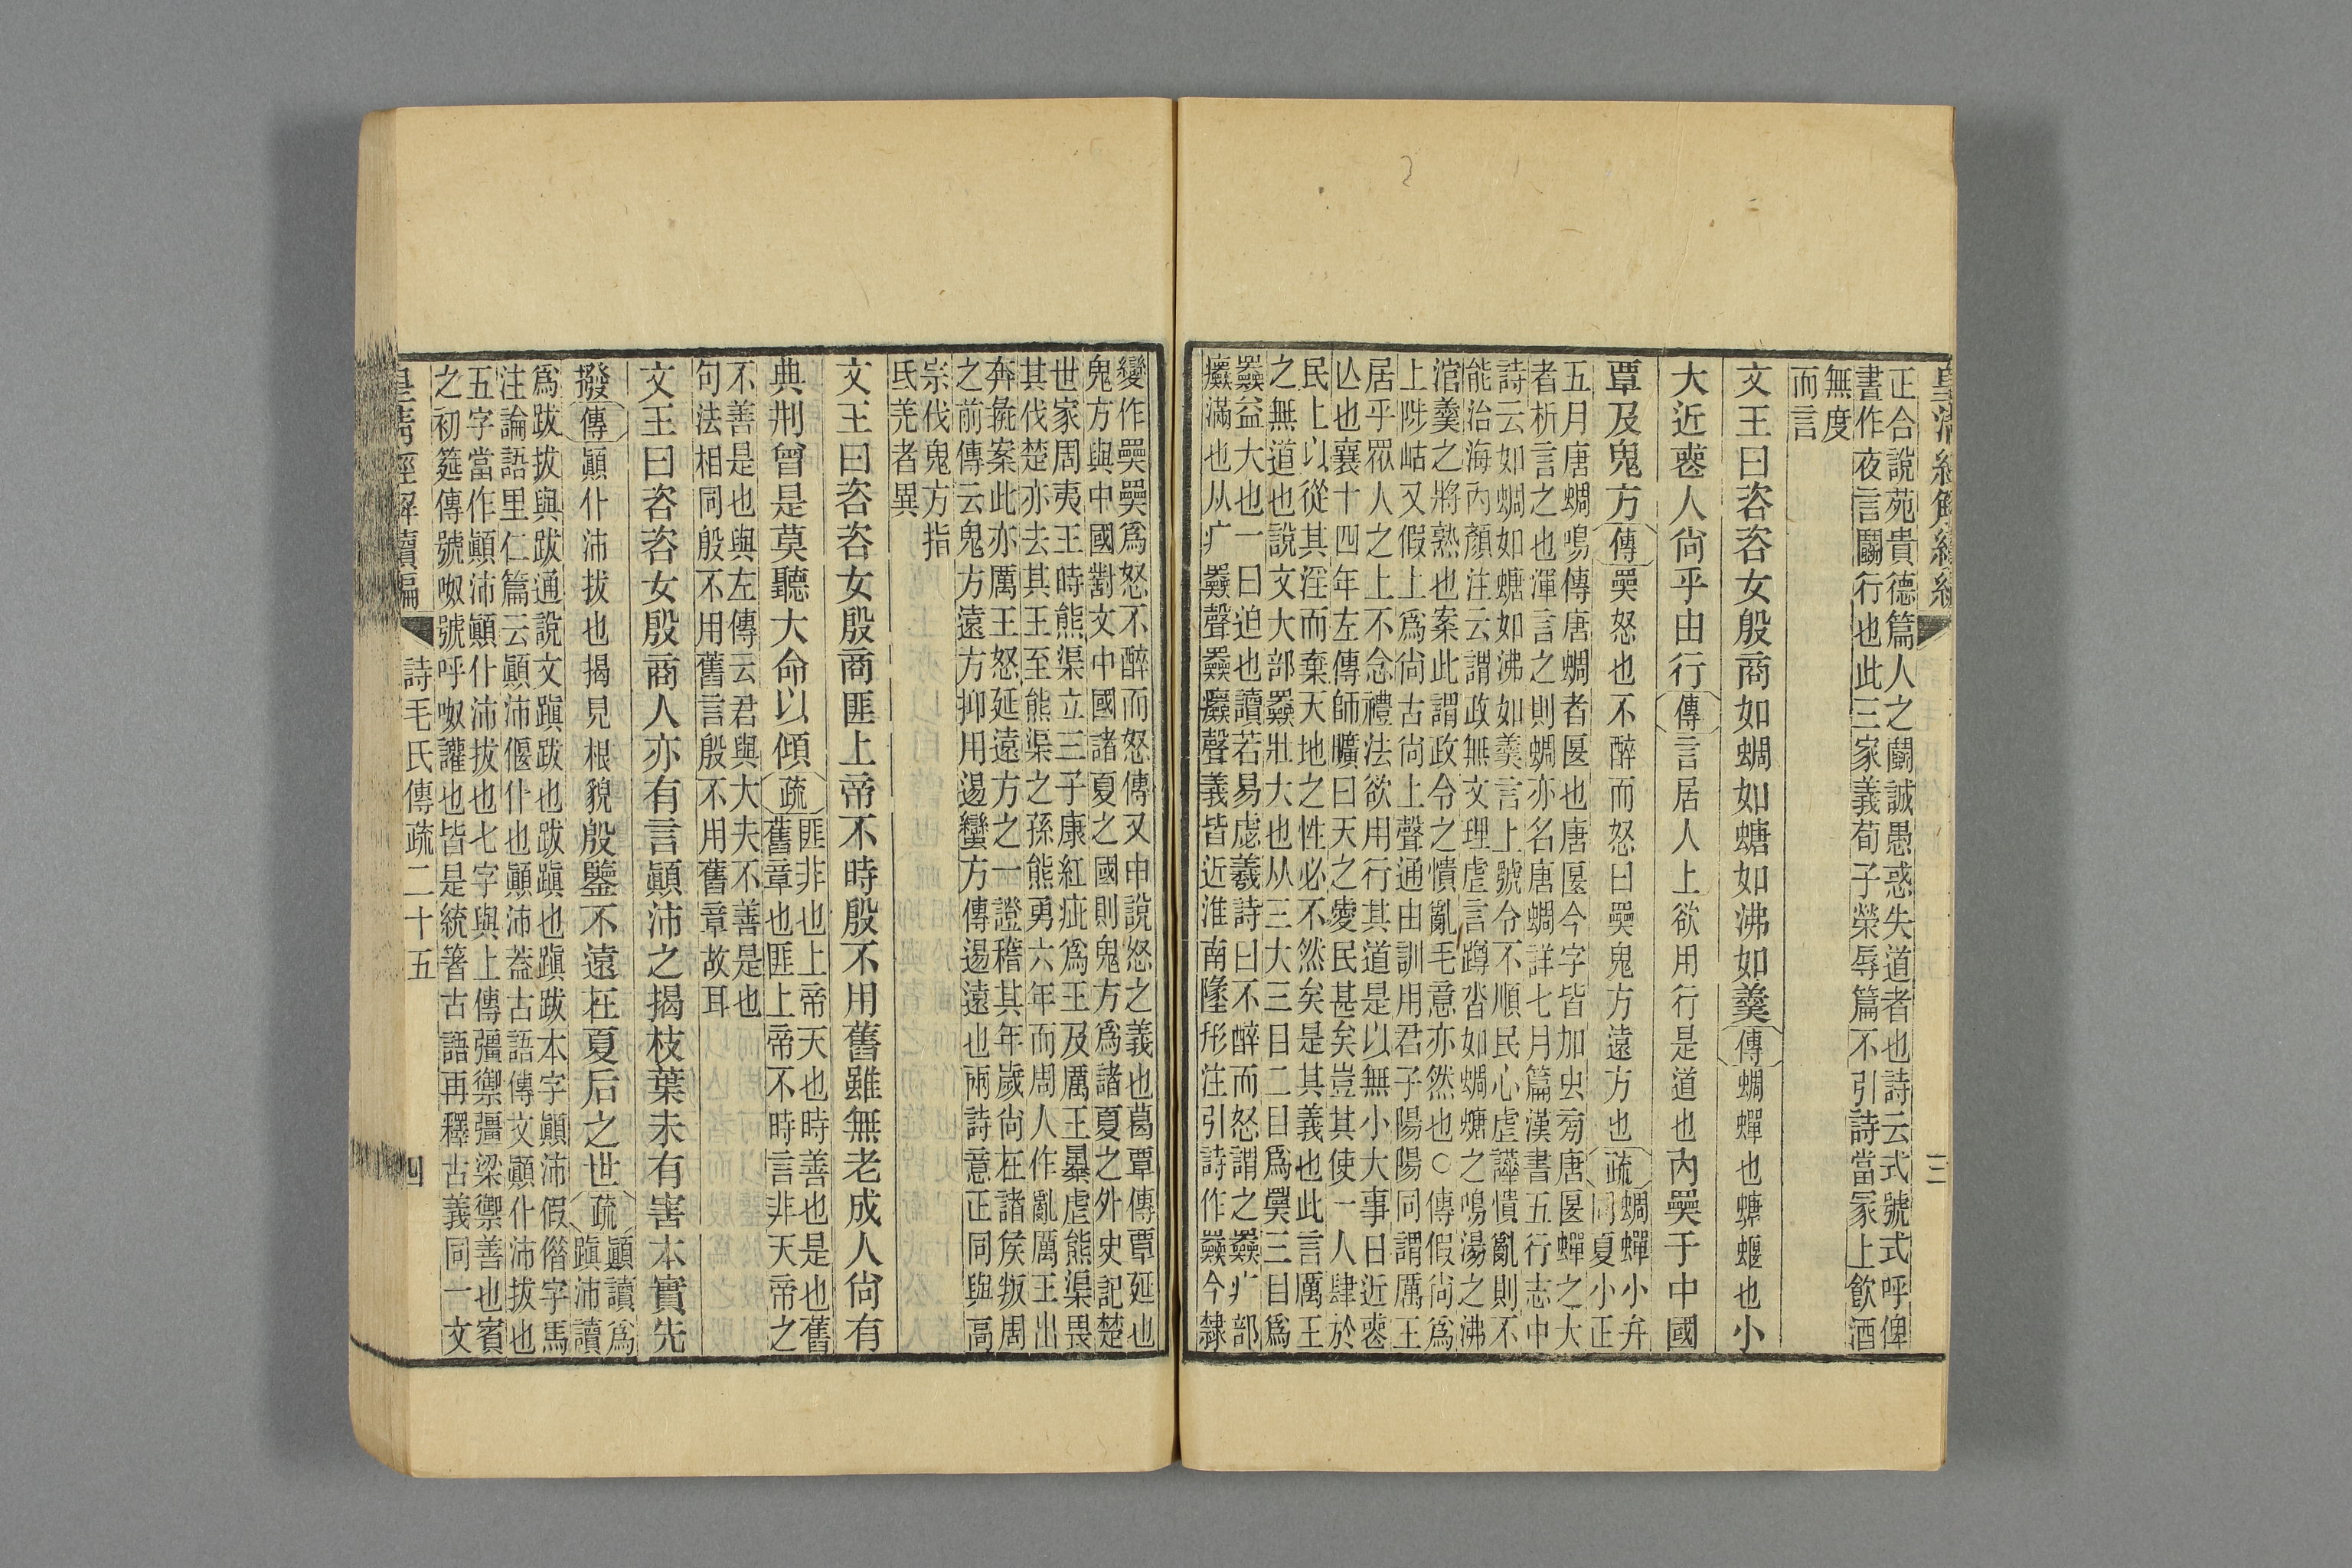 皇清經解續編
三
正合說苑貴德篇人之鬭誠愚惑失道者也詩云式號式呼俾
晝作夜言鬭行也此三家義荀子榮辱篇不引詩當冡上飲酒
無度
而言
文王曰咨咨女殷商如蜩如螗如沸如羹傳蜩蟬也螗蝘也小
大近喪人尙乎由行傳言居人上欲用行是道也內奰于中國
覃及鬼方傳奰怒也不醉而怒曰奰鬼方遠方也疏蜩蟬小弁
同夏小正
五月唐蜩鳴傳唐蜩者匽也唐匽今字皆加虫旁唐匽蟬之大
者析言之也渾言之則蜩亦名唐蜩詳七月篇漢書五行志中
詩云如蜩如螗如沸如羹言上號令不順民心虛譁憒亂則不
能治海內顏注云謂政無文理虛言蹲沓如蜩螗之鳴湯之沸
涫羹之將熟也案此謂政令之憒亂毛意亦然也○傳假尙爲
上陟岵又假上爲尙古尙上聲通由訓用君子陽陽同謂厲王
居乎眾人之上不念禮法欲用行其道是以無小大事曰近喪
亾也襄十四年左傳師曠曰天之愛民甚矣豈其使一人肆於
民上以從其淫而棄天地之性必不然矣是其義也此言厲王
之無道也說文大部𡚤壯大也从三大三目二目爲𡘽三目爲
𡚤益大也一曰迫也讀若易虙羲詩曰不醉而怒謂之𡚤疒部
癳滿也从疒𡚤聲𡚤癳聲義皆近淮南墬形注引詩作𡚤今隸
變作奰奰爲怒不醉而怒傳又申說怒之義也葛覃傳覃延也
鬼方與中國對文中國諸夏之國則鬼方爲諸夏之外史記楚
世家周夷王時熊渠立三子康紅疵爲王及厲王暴虐熊渠畏
其伐楚亦去其王至熊渠之孫熊勇六年而周人作亂厲王出
奔彘案此亦厲王怒延遠方之一證稽其年歲尙在諸侯叛周
之前傳云鬼方遠方抑用逷蠻方傳逷遠也兩詩意正同與高
宗伐鬼方指
氐羌者異
文王曰咨咨女殷商匪上帝不時殷不用舊雖無老成人尙有
典刑曾是莫聽大命以傾疏匪非也上帝天也時善也是也舊
舊章也匪上帝不時言非天帝之
不善是也與左傳云君與大夫不善是也
句法相同殷不用舊言殷不用舊章故耳
文王曰咨咨女殷商人亦有言顚沛之揭枝葉未有害本實先
撥傳顚仆沛拔也揭見根貌殷鑒不遠在夏后之世疏顚讀爲
蹎沛讀
爲跋拔與跋通說文蹎跋也跋蹎也蹎跋本字顚沛假偕字馬
注論語里仁篇云顚沛偃仆也顚沛葢古語傳文顚仆沛拔也
五字當作顚沛顚仆沛拔也七字與上傳彊禦彊梁禦善也賓
之初筵傳號呶號呼呶讙也皆是統箸古語再釋古義同一文
皇淸經解續編
詩毛氏傳疏二十五
四